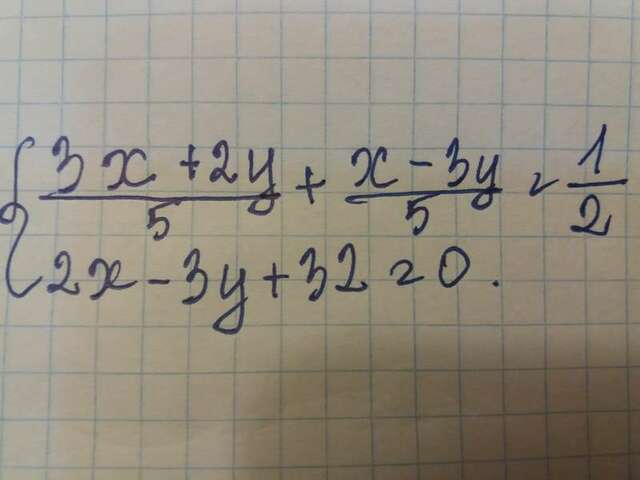 { (3x + 2y)/5 + (x - 3y)/5 = 1/2
2x - 3y + 32 = 0.